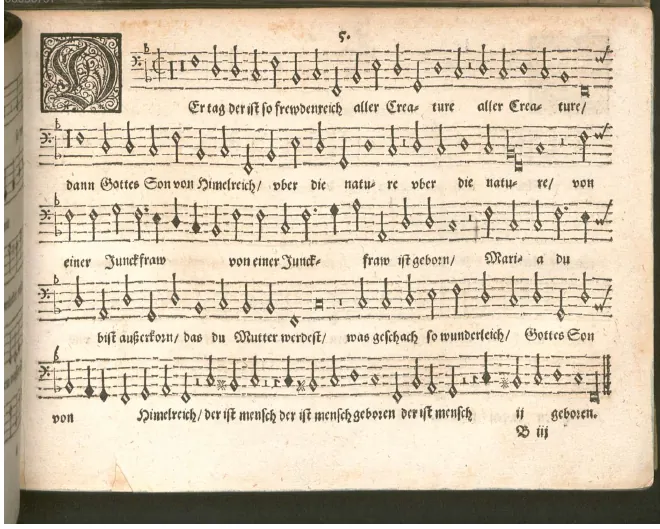 5.
DEr tag der ist so frewdenreich aller Crea- ture aller Crea- ture/
dann Gottes Son von Himelreich/ vber die natu- re vber die natu- re/ von
einer Junckfraw von einer Junck- fraw ist geborn/ Mari- a du
bist außerkorn/ das du Mutter werdest/ was geschach so wunderleich/ Gottes Son
von Himelreich/ der ist mensch der ist mensch geboren der ist mensch ij geboren.
B iij